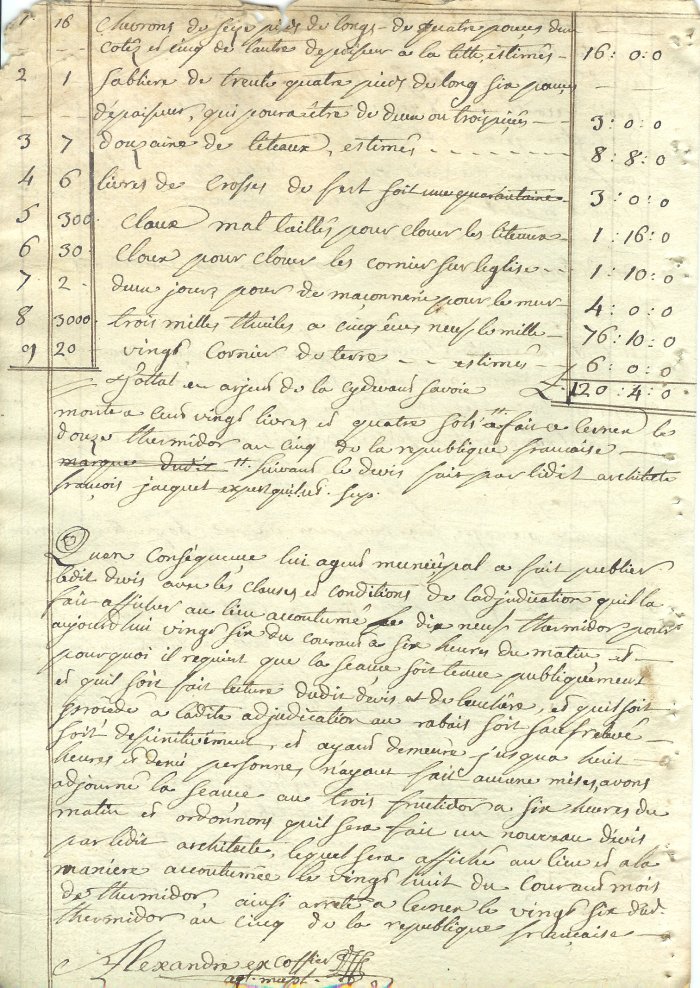 1 16 Chevrons de seize pieds de longs de quatre pouces d'un
coté et cinq de lautre depaiseur a la tette, estimés 16 : 0 : 0
2 1 Sabliere de trente quatre pieds de long six pouces
d'epaiseur, qui poura être de deux ou trois pièces 3 : 0 : 0
3 7 douzaine de liteaux, estimés 8 : 8 : 0
4 6 livres de Crosses de fert soit une quarantaine 3 : 0 : 0
5 300 Cloux mal taillés pour clouer les liteaux 1 : 16 : 0
6 30 Cloux pour clouer les cornier sur leglise 1 : 10 : 0
7 2 deux jours pour de maçonnerie pour le mur 4 : 0 : 0
8 3000 trois milles thuiles a cinq écus neuf le mille 76 : 10 : 0
9 20 vingt Cornier de terre estimés 6 : 0 : 0
Tottal en arjent de la cydevant savoie £ 120 : 4 : 0
monte a cent vingt livres et quatre sols fait a cerner le
douze thermidor an cinq de la republique francaise
marque dudit suivant le devis fait par ledit architecte
françois jacquet expert
Quen conséquence lui agent municipal a fait publier
ledit devis avec les clauses et conditions de ladjudication quil la
fait afficher au lieu accoutumé le dix neuf thermidor pour
aujourdhui vingt six du courant a six heures du matin et
pourquoi il requiert que la seance soit tenue publiquement
et quil soit fait lecture dudit devis et de lenchère, et quil soit
procédé a ladite adjudication au rabais soit
soit definitivement, et ayant demeuré jusqua huit
heures et demi personnes n'ayant fait aucune mises, avons
adjourné la seance au trois fructidor a six heures du
matin et ordonnons quil sera fait un nouveau devis
par ledit architecte, lequel sera affiché au lieu et a la
maniere accoutumée le vingt huit du courant mois
de thermidor, ainsi arreté a cerner le vingt six dud.
thermidor an cinq de la republique française
Alexandre excoffier
agt. mcpl.